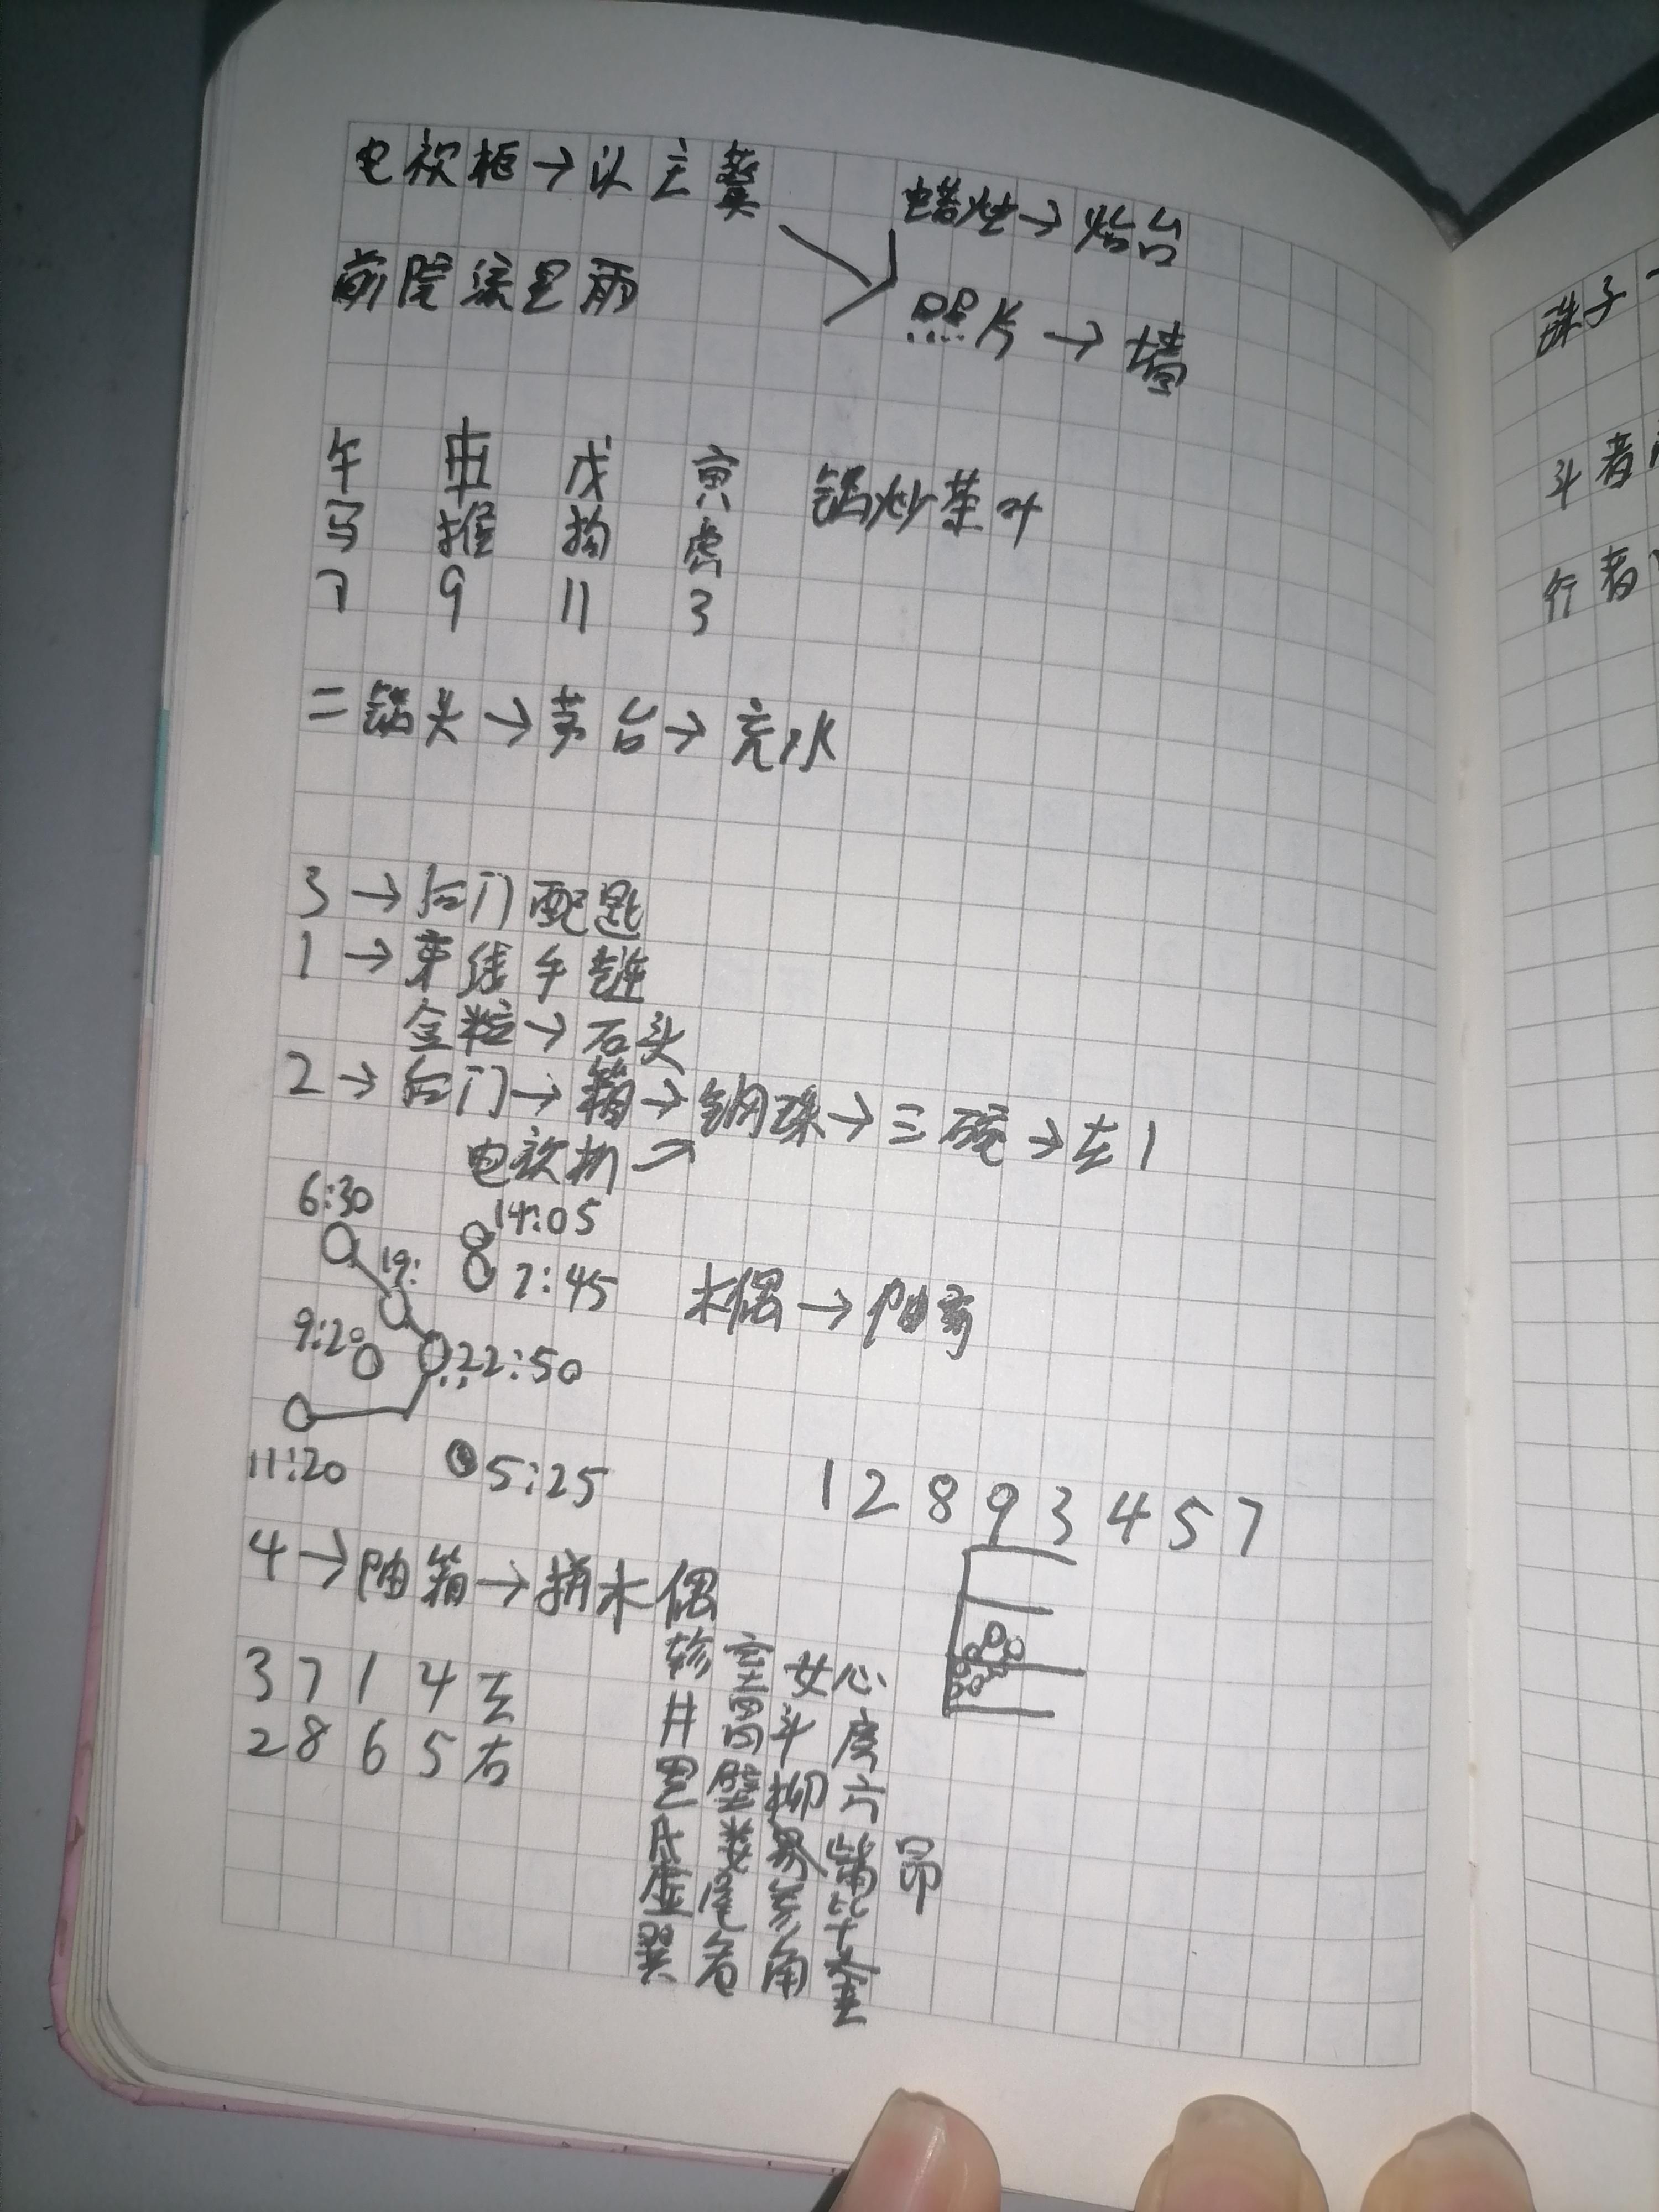 电视柜→以主
蜡烛→烛台
前院流星雨
照片→墙
午 申 戌 寅 锅炒茶叶
马 猴 狗 虎
7 9 11 3
二锅头→茅台→充水
3→后门配匙
1→束线手链
金粒→石头
2→后门→箱→钢珠→三碗→左1
电视机→
6:30 14:05
19: 2:45 木偶→抽盒
9:20 22:50
11:20 5:25
1 2 8 9 3 4 5 7
4→抽箱→拼木偶
3 7 1 4 左
2 8 6 5 右
轸 室 女 心
井 胃 斗 房
星 壁 柳 亢
氐 娄 鬼 觜 昴
虚 尾 参 毕
翼 危 角 奎
珠子
斗者
行者